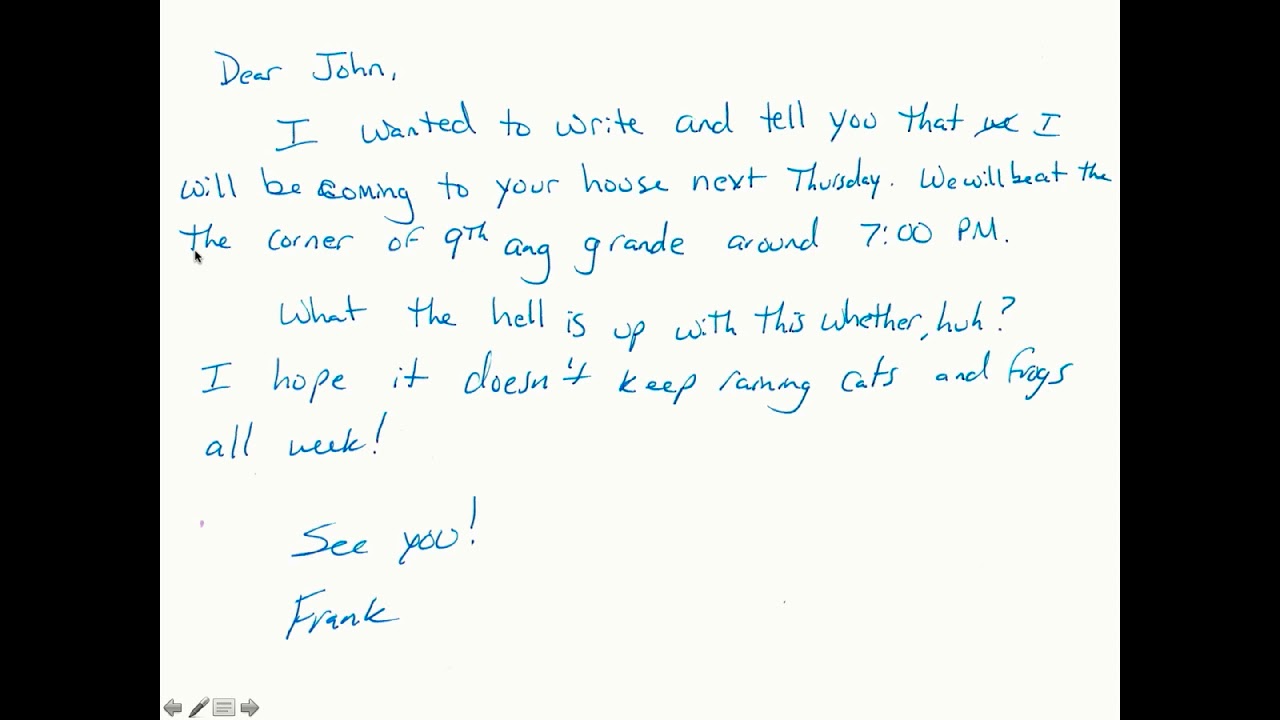 Dear John,
I wanted to write and tell you that I
will be coming to your house next Thursday. We will be at the
the corner of 9th ang grande around 7:00 PM.
What the hell is up with this whether, huh?
I hope it doesn't keep raining cats and frogs
all week!
See you!
Frank